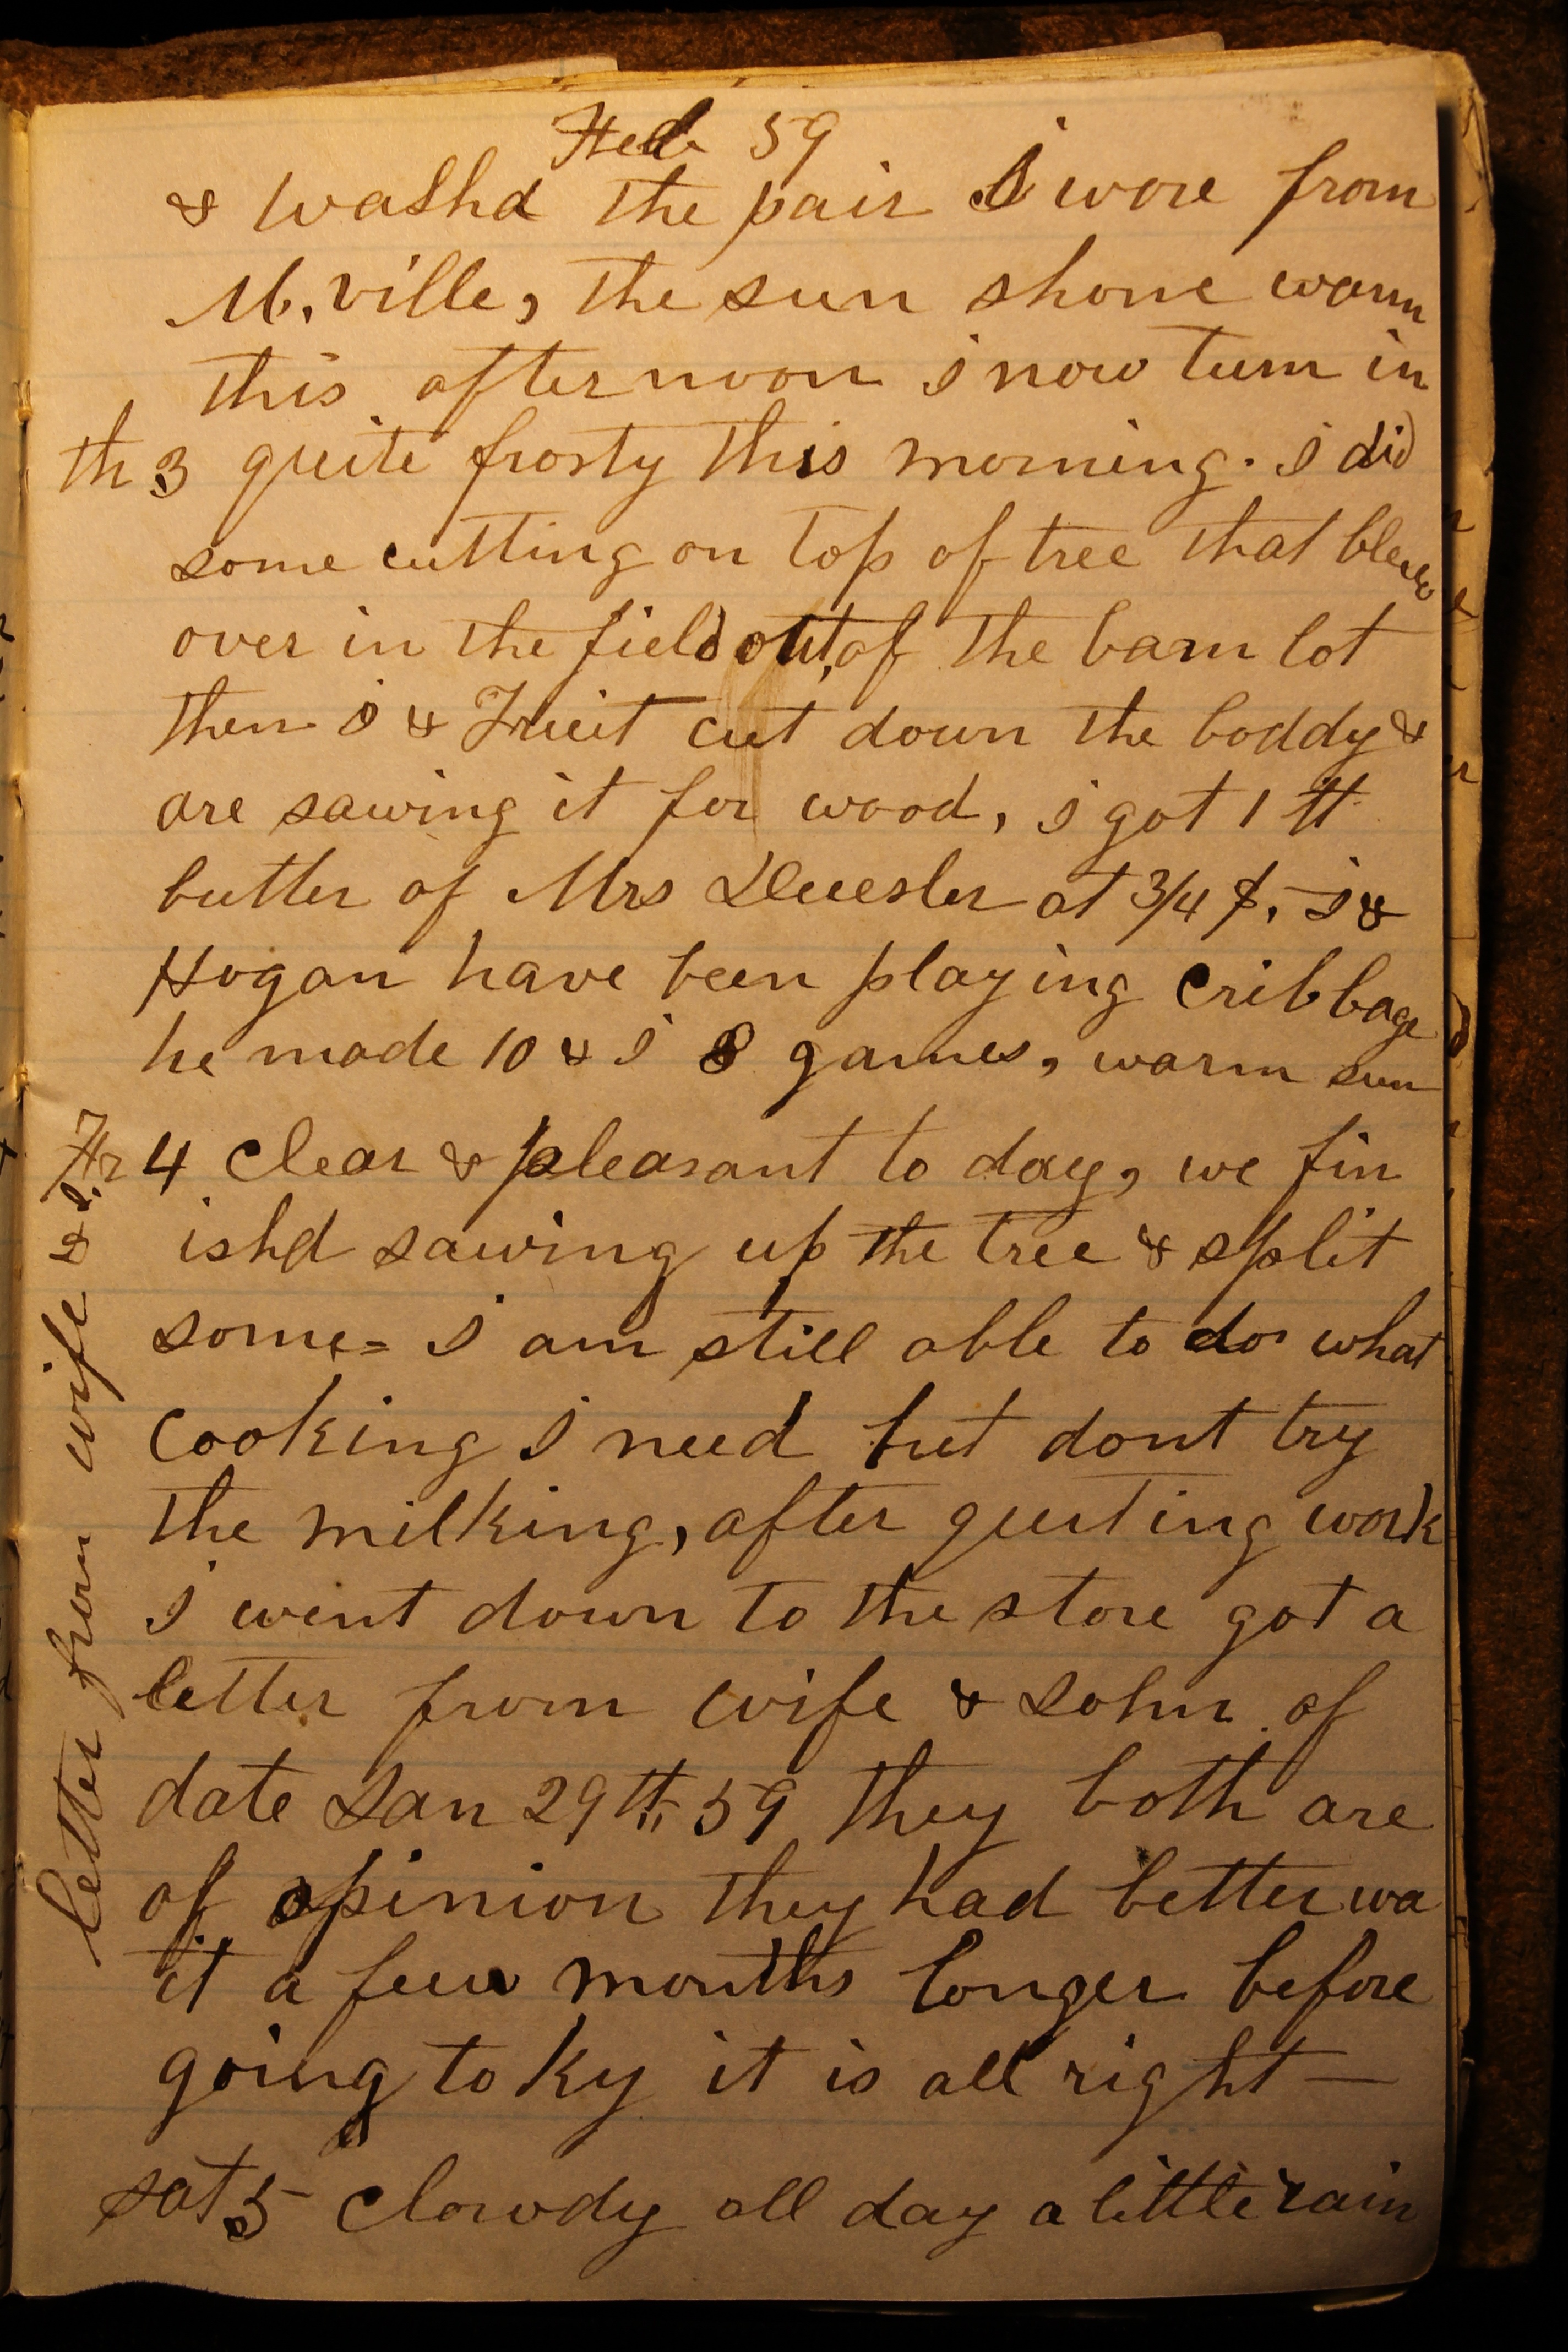 Feb 59
& washd the pair I wore from
M.ville, the sun shone warm
this afternoon I now turn in
th 3 quite frosty this morning. I did
some cutting on top of tree that blew
over in the field out of the barn lot
then I & Truit cut down the boddy &
are sawing it for wood, I got 1 tt
butter of Mrs at 3/4 $, - I &
Hogan have been playing cribbage
he made 10 & I 8 games, warm sun
Fr 4 clear & pleasant to day, we fin
ishd sawing up the tree & split
some = I am still able to do what
cooking I need but dont try
the milking, after quiting work
I went down to the store got a
letter from wife & John of
date Jan 29th 59 they both are
of opinion they had better wa
it a few months longer before
going to Ky it is all right —
sat 5 clowdy all day a little rain
letter from wife & J.